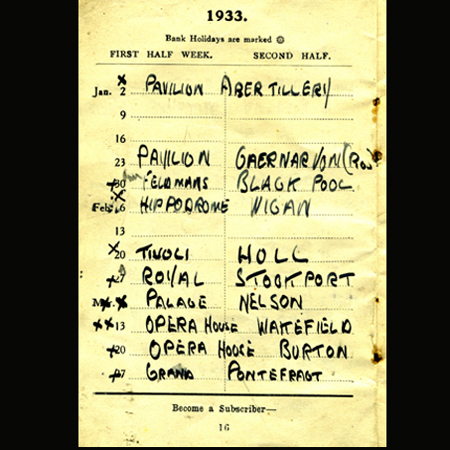 1933.
Bank Holidays are marked
FIRST HALF WEEK. SECOND HALF.
Jan. 2 PAVILION ABERTILLERY
9
16
23 PAVILION CAERNARVON (Ros
30 FELDMANS BLACK POOL
Feb. 6 HIPPODROME WIGAN
13
20 TIVOLI HULL
27 ROYAL STOCKPORT
PALACE NELSON
13 OPERA HOUSE WAKEFIELD
20 OPERA HOUSE BURTON
27 GRAND PONTEFRACT
Become a Subscriber—
16